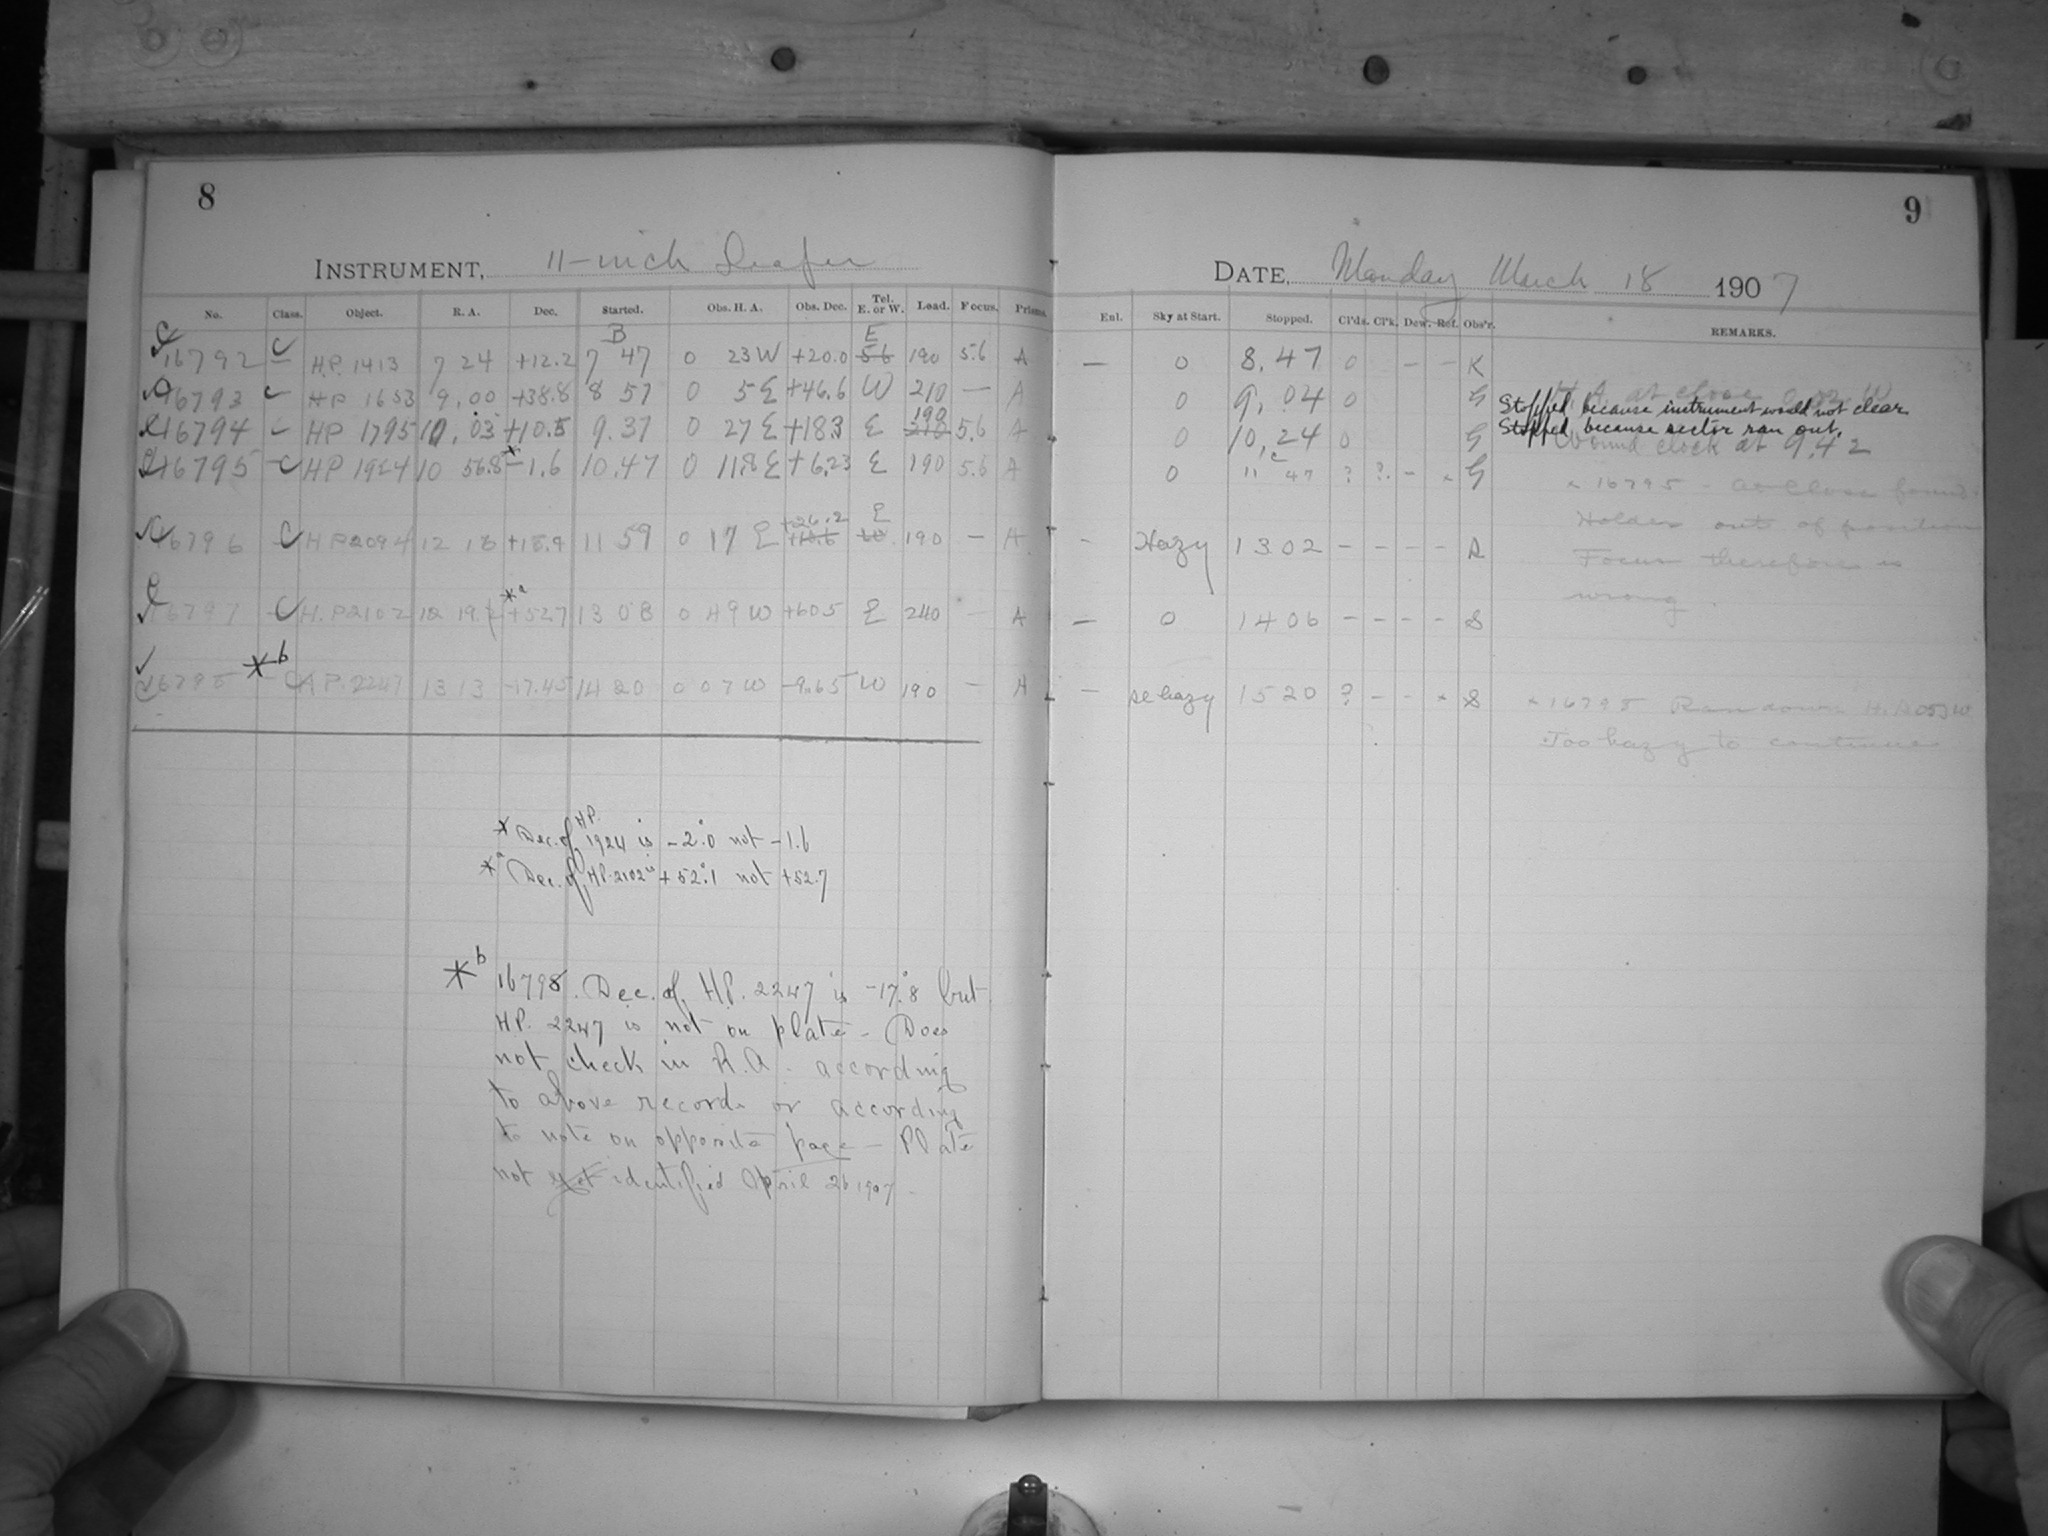 8
INSTRUMENT, 11-inch Draper
No. Class. Object. R. A. Dec. Started. Obs. H. A. Obs. Dec. Tel. E. or W. Load. Focus. Prisms.
B E
16792 C H.P. 1413 7 24 +12.2 7 47 0 23 W +20.0 56 190 5.6 A
16793 C HP 1653 9.00 +38.8 8 57 0 5 E +46.6 W 210 — A
16794 C HP 1795 10.03 +10.5 9.37 0 27 E +18.3 E 190 210 5.6 A
16795 C HP 1924 10 56.8 *-1.6 10.47 0 11.8 E +6.23 E 190 5.6 A
+26.2 E
16796 C HP 2094 12 18 +18.9 11 59 0 17 E +18.6 W 190 — A
16797 C H.P 2102 12 19.2 *a +52.7 13 08 0 49 W +60.5 E 240 — A
16798 *b C H.P. 2247 13 13 -17.45 14 20 0 07 W -9.65 W 190 — A
* Dec. of HP. 1924 is -2°.0 not -1.6
*a Dec. of HP. 2102 is +52°.1 not +52.7
*b 16798. Dec. of HP. 2247 is -17°.8 but
HP. 2247 is not on plate - Does
not check in R.A. according
to above records or according
to note on opposite page - Plate
not yet identified April 26 1907
9
DATE, Monday March 18 1907
Enl. Sky at Start. Stopped. Cl'ds. Cl'k. Dew. Ref. Obs'r. REMARKS.
— 0 8.47 0 - - K
0 9.04 0 G H.A. at close W
Stopped because instrument would not clear
0 10,24 0 G Stopped because sector ran out.
Wound clock at 9.42
0 11 47 ? ? - * G * 16795 - At close found
Holder out of position
- Hazy 13 02 - - - - A Focus therefore is
wrong.
— 0 14 06 - - - - S
- hazy 15 20 ? - - * S * 16798 Ran down H.A. W
Too hazy to continue